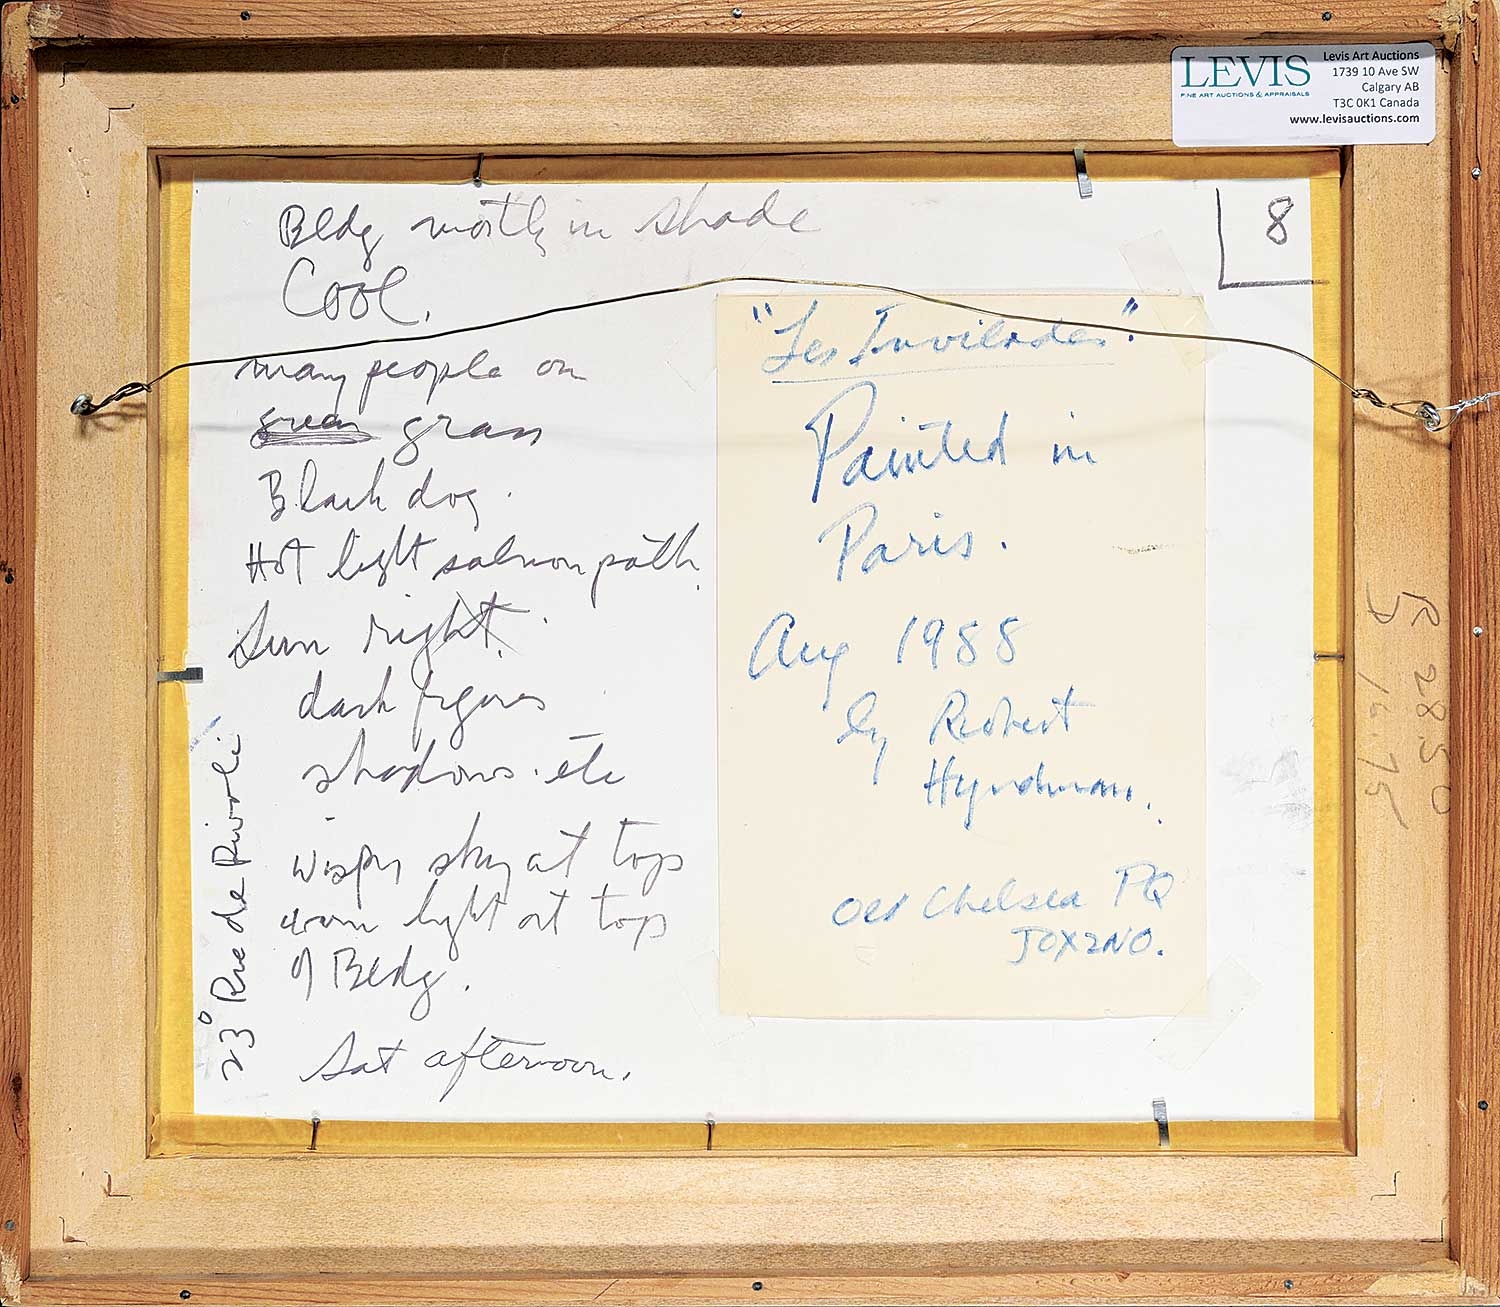 LEVIS
FINE ART AUCTIONS & APPRAISALS
Levis Art Auctions
1739 10 Ave SW
Calgary AB
T3C 0K1 Canada
www.levisauctions.com
8
Bldg mostly in shade
Cool.
many people on
green grass
Black dog.
Hot light salmon path.
Sun right.
dark figures
shadows. etc
wispy sky at tops
warm light at top
of Bldg.
Sat afternoon.
23° Rue de Rivoli
"Les Invilades"
Painted in
Paris.
Aug 1988
by Robert
Hyndman.
Old Chelsea PQ
J0X2N0.
R 2850
16.75